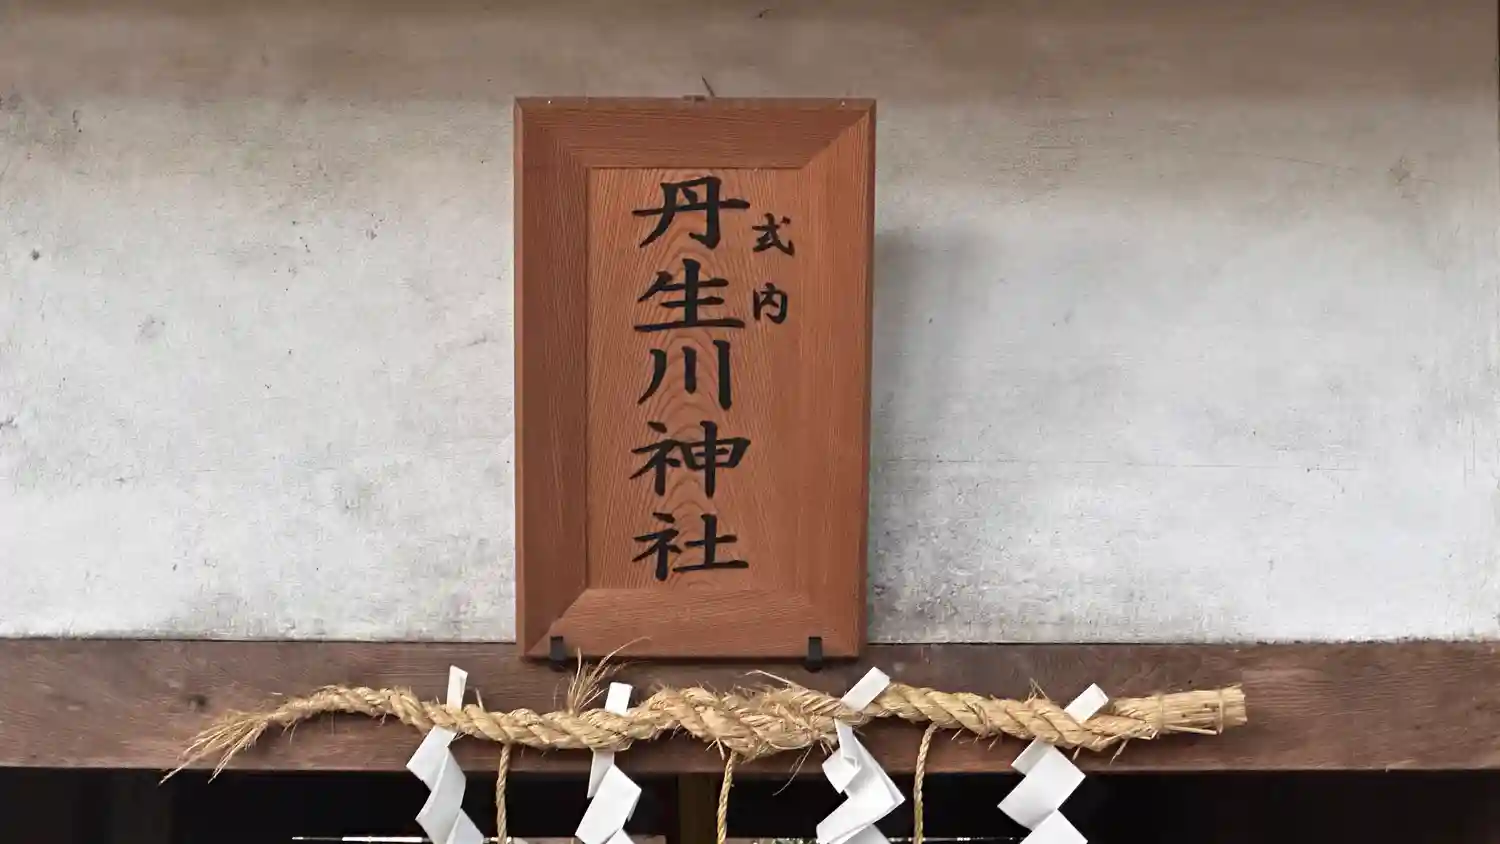 式内
丹生川神社